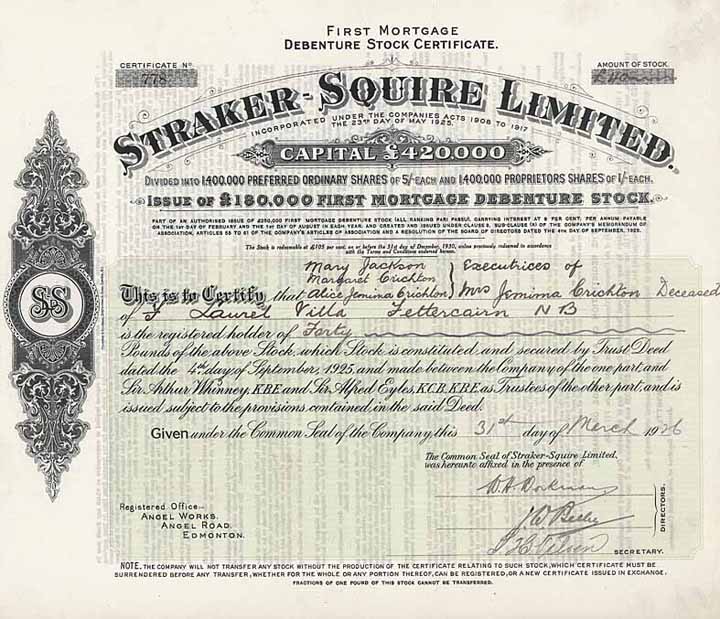 FIRST MORTGAGE
DEBENTURE STOCK CERTIFICATE.
CERTIFICATE Nº
778
AMOUNT OF STOCK.
STRAKER-SQUIRE LIMITED.
INCORPORATED UNDER THE COMPANIES ACTS 1908 TO 1917
THE 23RD DAY OF MAY 1925.
CAPITAL £420,000
DIVIDED INTO 1,400,000 PREFERRED ORDINARY SHARES OF 5/- EACH AND 1,400,000 PROPRIETORS SHARES OF 1/- EACH.
ISSUE OF £180,000 FIRST MORTGAGE DEBENTURE STOCK.
PART OF AN AUTHORISED ISSUE OF £250,000 FIRST MORTGAGE DEBENTURE STOCK (ALL RANKING PARI PASSU), CARRYING INTEREST AT 8 PER CENT. PER ANNUM PAYABLE
ON THE 1ST DAY OF FEBRUARY AND THE 1ST DAY OF AUGUST IN EACH YEAR, AND CREATED AND ISSUED UNDER CLAUSE 3, SUB-CLAUSE (A) OF THE COMPANY'S MEMORANDUM OF
ASSOCIATION, ARTICLES 55 TO 61 OF THE COMPANY'S ARTICLES OF ASSOCIATION AND A RESOLUTION OF THE BOARD OF DIRECTORS DATED THE 4TH DAY OF SEPTEMBER, 1925.
The Stock is redeemable at £105 per cent. on or before the 31st day of December, 1930, unless previously redeemed in accordance
with the Terms and Conditions endorsed hereon.
Mary Jackson
Margaret Crichton
This is to Certify that Alice Jemima Crichton } Executrices of Mrs Jemima Crichton Deceased
of Laurel Villa Fettercairn N B
is the registered holder of Forty
Pounds of the above Stock, which Stock is constituted and secured by Trust Deed
dated the 4th day of September, 1925, and made between the Company of the one part, and
Sir Arthur Whinney, K.B.E. and Sir Alfred Eyles, K.C.B., K.B.E. as Trustees of the other part, and is
issued subject to the provisions contained in the said Deed.
Given under the Common Seal of the Company this 31st day of March 1926
The Common Seal of Straker-Squire Limited,
was hereunto affixed in the presence of
DIRECTORS.
SECRETARY.
Registered Office—
ANGEL WORKS,
ANGEL ROAD,
EDMONTON.
SS
NOTE. THE COMPANY WILL NOT TRANSFER ANY STOCK WITHOUT THE PRODUCTION OF THE CERTIFICATE RELATING TO SUCH STOCK, WHICH CERTIFICATE MUST BE
SURRENDERED BEFORE ANY TRANSFER, WHETHER FOR THE WHOLE OR ANY PORTION THEREOF, CAN BE REGISTERED, OR A NEW CERTIFICATE ISSUED IN EXCHANGE.
FRACTIONS OF ONE POUND OF THIS STOCK CANNOT BE TRANSFERRED.